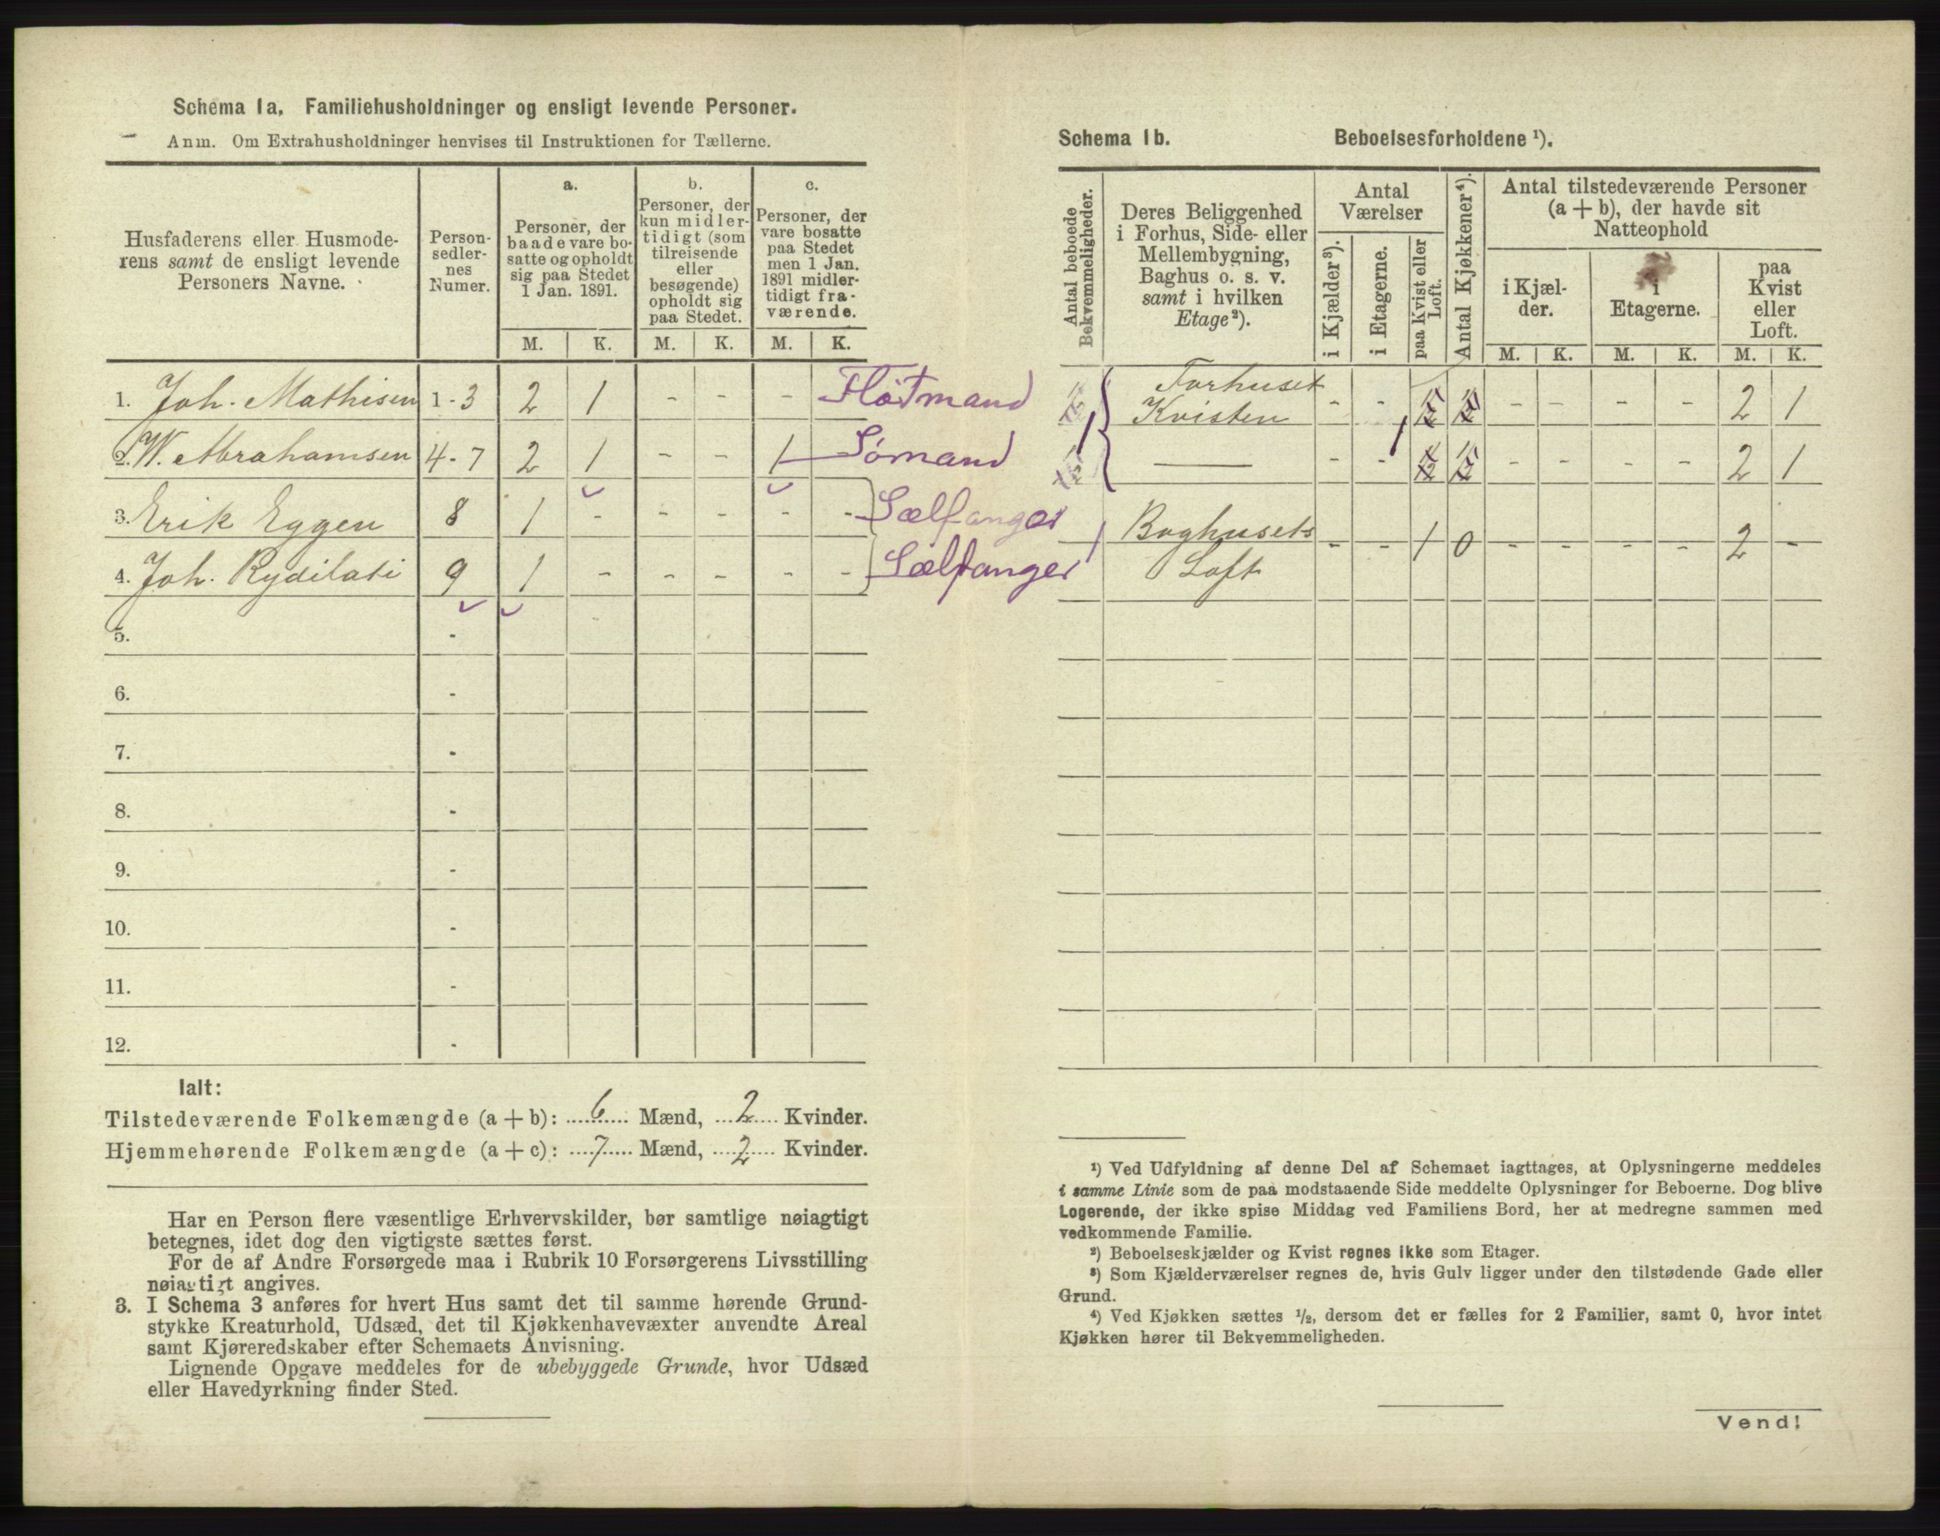 Schema 1a. Familiehusholdninger og ensligt levende Personer.
Anm. Om Extrahusholdninger henvises til Instruktionen for Tællerne.
Husfaderens eller Husmode-
rens samt de ensligt levende
Personers Navne.
Person-
sedler-
nes
Numer.
a.
Personer, der
baade vare bo-
satte og opholdt
sig paa Stedet
1 Jan. 1891.
b.
Personer, der
kun midler-
tidigt (som
tilreisende
eller
besøgende)
opholdt sig
paa Stedet.
c.
Personer, der
vare bosatte
paa Stedet
men 1 Jan.
1891 midler-
tidigt fra-
værende.
M. K. M. K. M. K.
1. Joh. Mathisen 1-3 2 1 - - - Fløtmand
2. W. Abrahamsen 4-7 2 1 - - 1 Sømand
3. Erik Eggen 8 1 - - - - - Sælfanger
4. Joh. Rydilati 9 1 - - - - - Sælfanger
5. -
6. -
7. -
8. -
9. -
10. -
11. -
12. -
Ialt:
Tilstedeværende Folkemængde (a + b): 6 Mænd, 2 Kvinder.
Hjemmehørende Folkemængde (a + c): 7 Mænd, 2 Kvinder.
Har en Person flere væsentlige Erhvervskilder, bør samtlige nøiagtigt
betegnes, idet dog den vigtigste sættes først.
For de af Andre Forsørgede maa i Rubrik 10 Forsørgerens Livsstilling
nøiagtigt angives.
3. I Schema 3 anføres for hvert Hus samt det til samme hørende Grund-
stykke Kreaturhold, Udsæd, det til Kjøkkenhavevæxter anvendte Areal
samt Kjøreredskaber efter Schemaets Anvisning.
Lignende Opgave meddeles for de ubebyggede Grunde, hvor Udsæd
eller Havedyrkning finder Sted.
Schema 1b. Beboelsesforholdene ¹).
Antal beboede
Bekvemmeligheder.
Deres Beliggenhed
i Forhus, Side- eller
Mellembygning,
Baghus o. s. v.
samt i hvilken
Etage²).
Antal
Værelser
i Kjælder³).
i Etagerne.
paa Kvist eller
Loft.
Antal Kjøkkener⁴).
Antal tilstedeværende Personer
(a + b), der havde sit
Natteophold
i Kjæl-
der.
i
Etagerne.
paa
Kvist
eller
Loft.
M. K. M. K. M. K.
Forhuset
Kvisten - - - - - - 2 1
1 1
— - - - - - - 2 1
1 Baghusets - - 1 0 - - - - 2 -
Loft
¹) Ved Udfyldning af denne Del af Schemaet iagttages, at Oplysningerne meddeles
i samme Linie som de paa modstaaende Side meddelte Oplysninger for Beboerne. Dog blive
Logerende, der ikke spise Middag ved Familiens Bord, her at medregne sammen med
vedkommende Familie.
²) Beboelseskjælder og Kvist regnes ikke som Etager.
³) Som Kjælderværelser regnes de, hvis Gulv ligger under den tilstødende Gade eller
Grund.
⁴) Ved Kjøkken sættes ½, dersom det er fælles for 2 Familier, samt 0, hvor intet
Kjøkken hører til Bekvemmeligheden.
Vend!